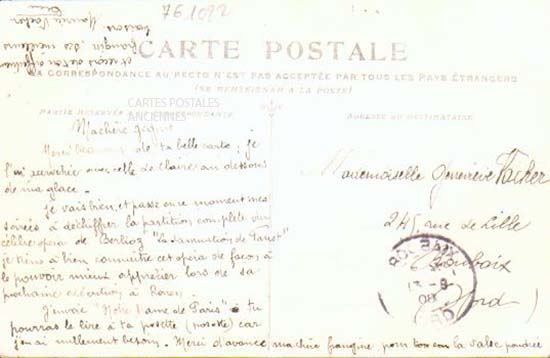 761022
CARTE POSTALE
LA CORRESPONDANCE AU RECTO N'EST PAS ACCEPTÉE PAR TOUS LES PAYS ÉTRANGERS
(SE RENSEIGNER A LA POSTE)
CARTES POSTALES
ANCIENNES
PARTIE RÉSERVÉE CORRESPONDANCE
ADRESSE DU DESTINATAIRE
Ma chère
Merci beaucoup de ta belle carte; je
l'ai accrochée avec celle de Claire au dessous
de ma glace.
Je vais bien, et passe en ce moment mes
soirées à déchiffrer la partition complète du
célèbre opéra de Berlioz "la damnation de Faust"
je tiens à bien connaître cet opéra de façon à
le pouvoir mieux apprécier lors de sa
prochaine exécution à Rouen.
J'envoie "Notre Dame de Paris" tu
pourras le lire à ta posette (posette) car
je n'en ai nullement besoin. Merci d'avance, ma chère frangine, pour la valse poudrée
et reçois de ton affectionné
frangin, ses meilleurs
baisers
Mademoiselle Geneviève
245, rue de Lille
Roubaix
(Nord)
ROUBAIX
13-8
08